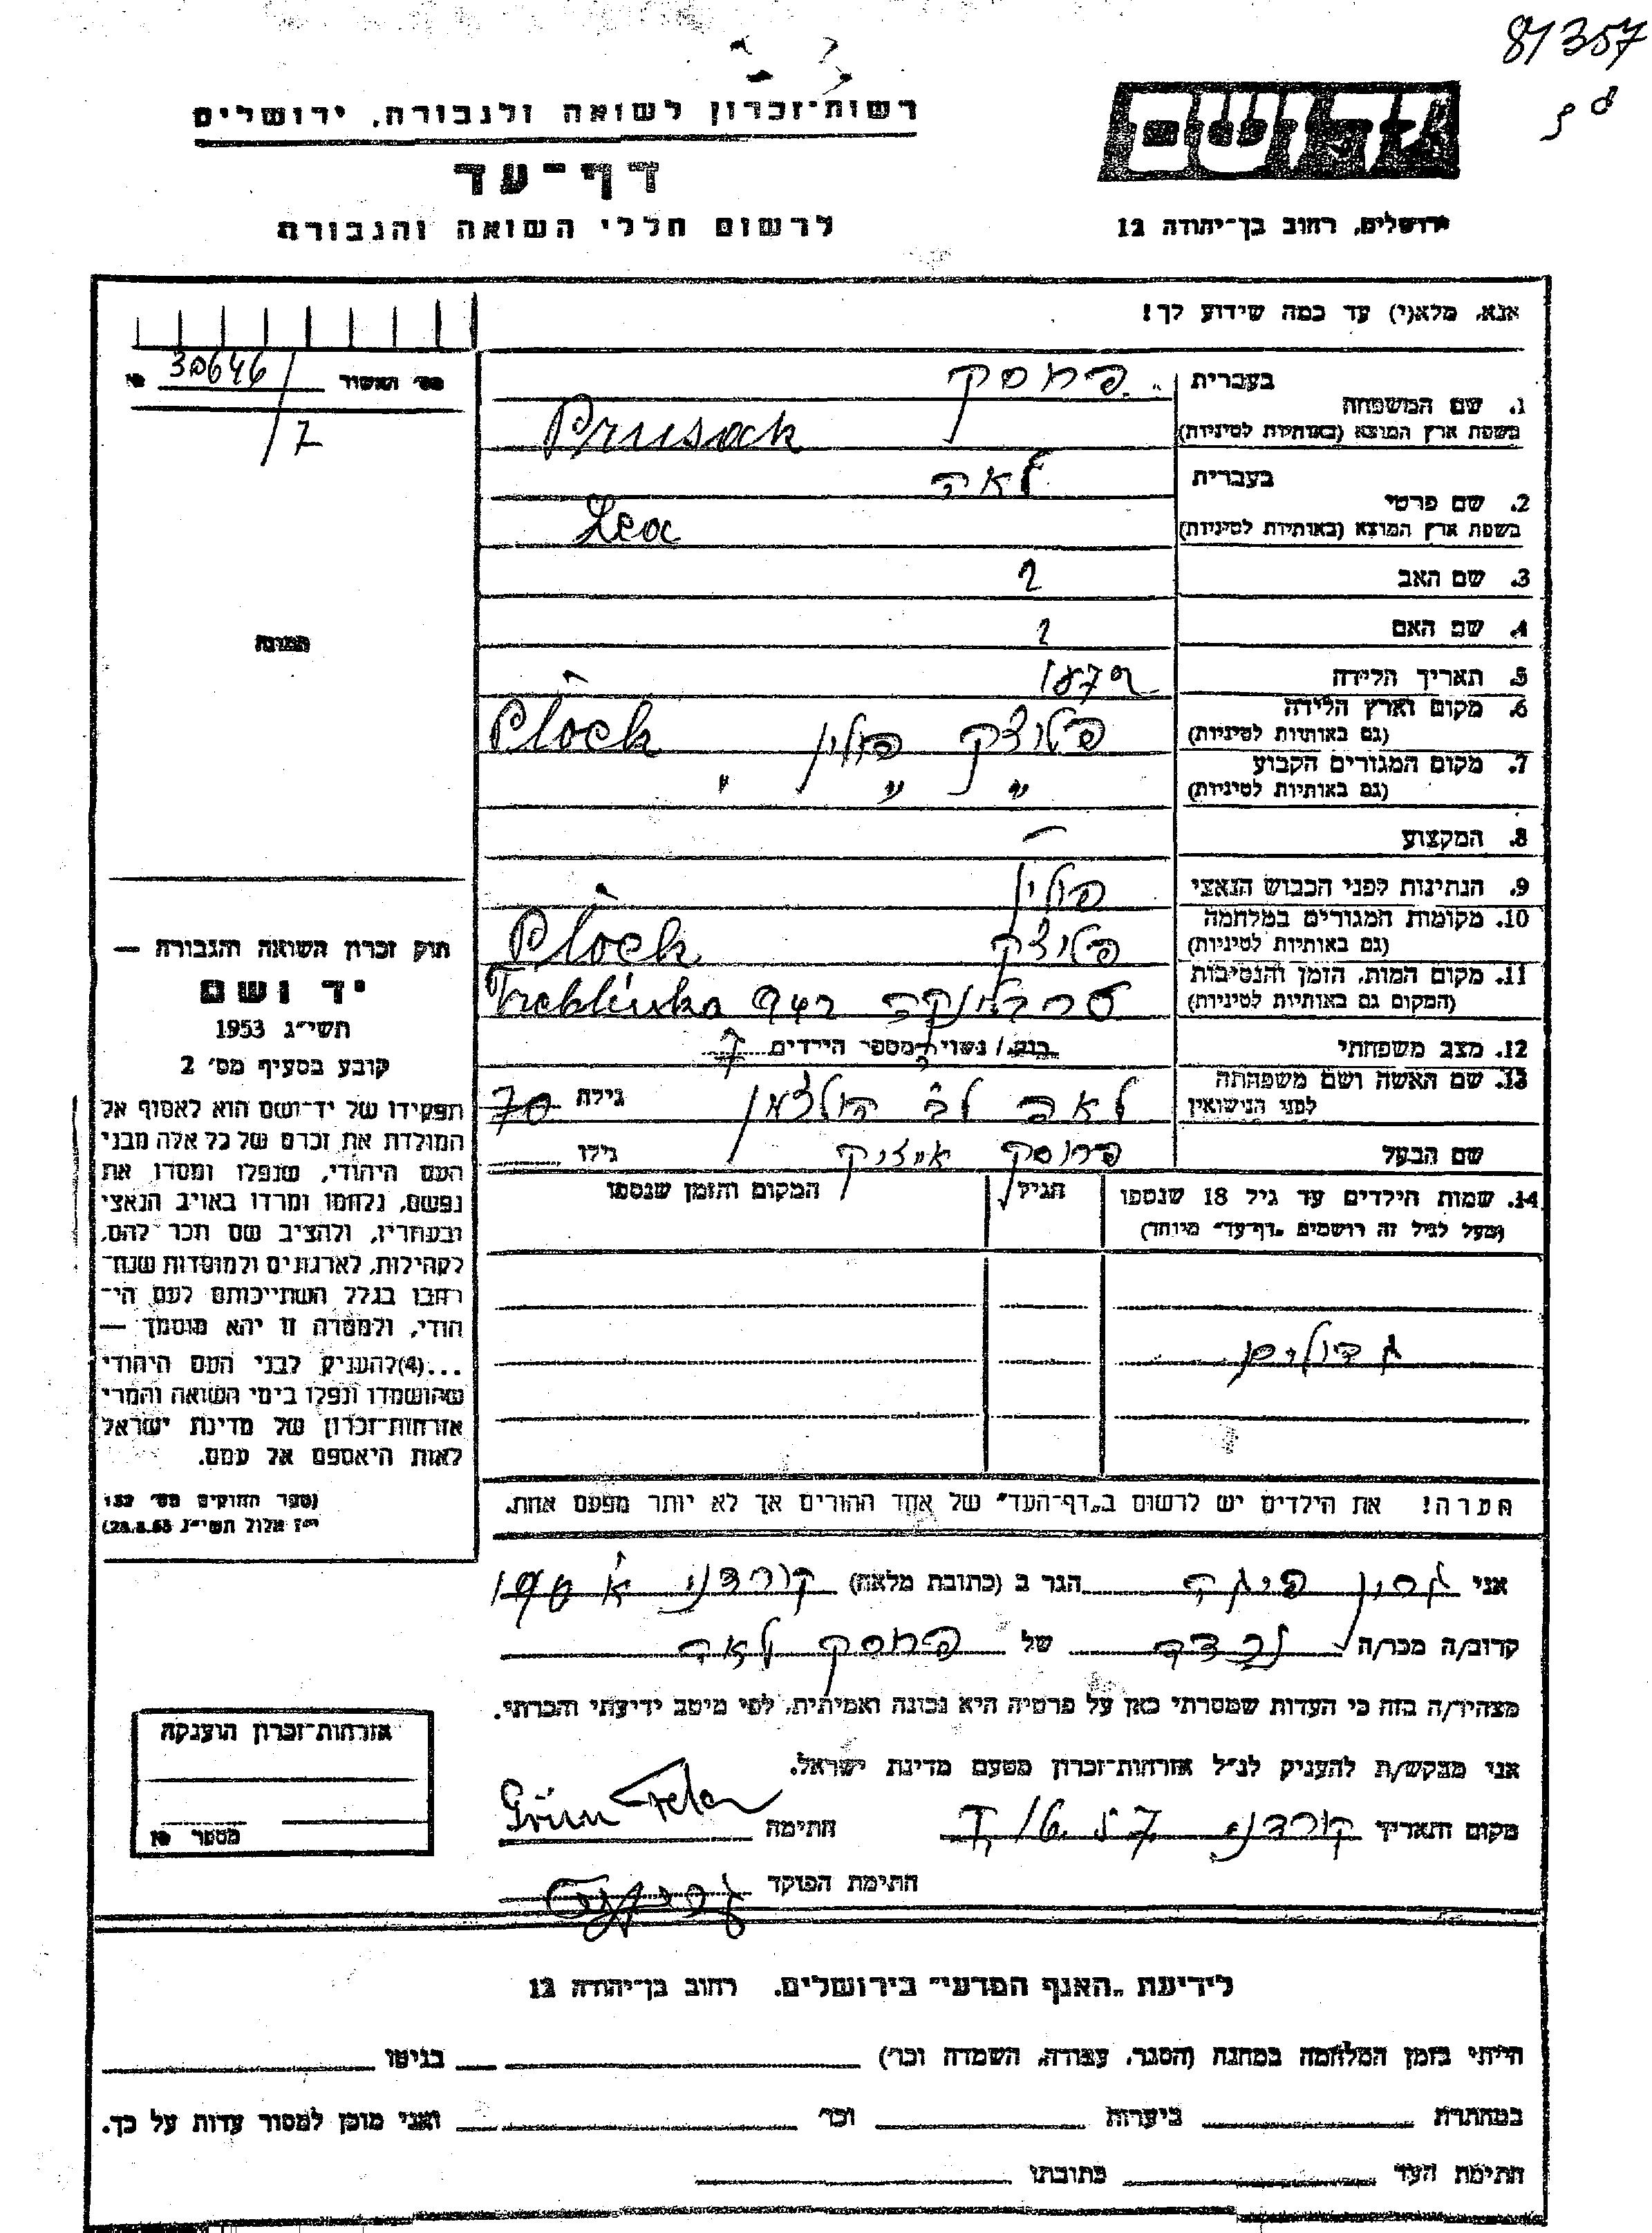 81357
רשות־זכרון לשואה ולגבורה, ירושלים
דף־עד
לרשום חללי השואה והגבורה
ירושלים, רחוב בן־יהודה 12
אנא, מלא(י) עד כמה שידוע לך!
מס׳ האשור 30646
/7
בעברית פרוסק
1. שם המשפחה
בשפת ארץ המוצא (באותיות לטיניות) Prusak
בעברית לאה
2. שם פרטי
בשפת ארץ המוצא (באותיות לטיניות) Lea
3. שם האב ?
4. שם האם ?
5. תאריך הלידה 1872
6. מקום וארץ הלידה
(גם באותיות לטיניות) פלוצק פולין Plock
7. מקום המגורים הקבוע
(גם באותיות לטיניות) " " "
8. המקצוע —
9. הנתינות לפני הכבוש הנאצי פולין
10. מקומות המגורים במלחמה
(גם באותיות לטיניות) פלוצק Plock
11. מקום המות, הזמן והנסיבות
(המקום גם באותיות לטיניות) טרבלינקה 942 Treblinka
12. מצב משפחתי רוק/ נשוי מספר הילדים 7
13. שם האשה ושם משפחתה
לפני הנישואין לאה לב הולצמן גילה 70
שם הבעל פרוסק איציק גילו
14. שמות הילדים עד גיל 18 שנספו הגיל המקום והזמן שנספו
(מעל לגיל זה רושמים „דף־עד״ מיוחד)
גדולים
הערה! את הילדים יש לרשום ב„דף־העד״ של אחד ההורים אך לא יותר מפעם אחת.
תמונה
חוק זכרון השואה והגבורה —
יד ושם
תשי״ג 1953
קובע בסעיף מס׳ 2
תפקידו של יד־ושם הוא לאסוף אל
המולדת את זכרם של כל אלה מבני
העם היהודי, שנפלו ומסרו את
נפשם, נלחמו ומרדו באויב הנאצי
ובעוזריו, ולהציב שם וזכר להם,
לקהילות, לארגונים ולמוסדות שנח־
רבו בגלל השתייכותם לעם הי־
הודי, ולמטרה זו יהא מוסמך —
...(4)להעניק לבני העם היהודי
שהושמדו ונפלו בימי השואה והמרי
אזרחות־זכרון של מדינת ישראל
לאות היאספם אל עמם.
(ספר החוקים מס׳ 132
י״ז אלול תשי״ג 28.8.53)
אני גרין פיגה הגר ב (כתובת מלאה) קורדני א׳ 190
קרוב/ה מכר/ה נכדה של פרוסק לאה
מצהיר/ה בזה כי העדות שמסרתי כאן על פרטיה היא נכונה ואמיתית, לפי מיטב ידיעתי והכרתי.
אני מבקש/ת להעניק לנ״ל אזרחות־זכרון מטעם מדינת ישראל.
מקום ותאריך קורדני חתימה Grün Fela
חתימת הפוקד
אזרחות־זכרון הוענקה
מספר
לידיעת „האגף המדעי״ בירושלים, רחוב בן־יהודה 12
הייתי בזמן המלחמה במחנה (הסגר, עבודה, השמדה וכו׳) בגיטו
במחתרת ביערות וכו׳ ואני מוכן למסור עדות על כך.
חתימת העד כתובתו